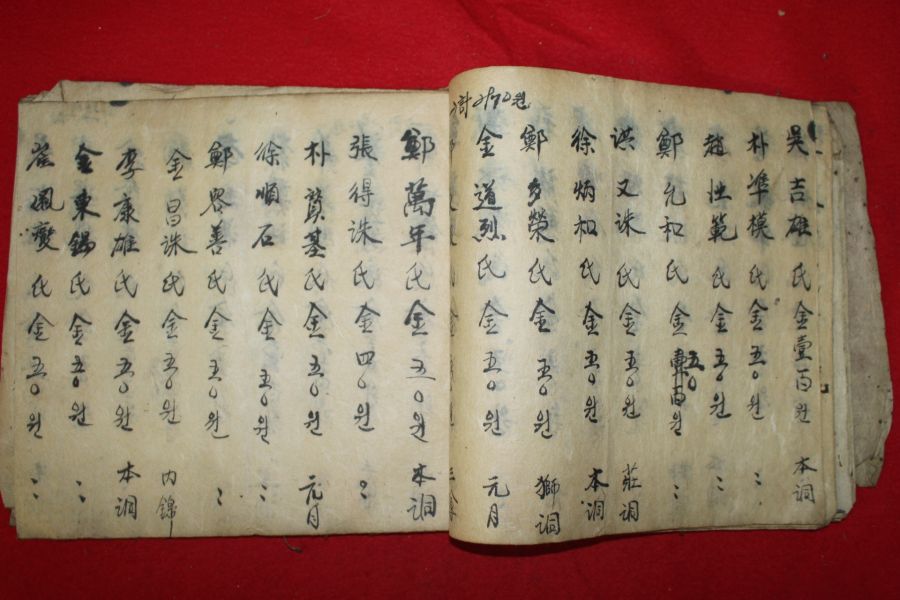 吳吉雄氏金壹百원 本洞
朴準模氏金五〇원 〻
趙性範氏金五〇원 〻
鄭允和氏金壹百원 五〇 〻
洪又洙氏金五〇원 莊洞
徐炳和氏金五〇원 本洞
鄭多榮氏金五〇원 獅洞
金道烈氏金五〇원 元月
계 원
鄭萬年氏金五〇원 本洞
張得洙氏金四〇원 〻
朴贊基氏金五〇원 元月
徐順石氏金五〇원 〻
鄭容善氏金五〇원 〻
金昌洙氏金五〇원 內錦
李康雄氏金五〇원 本洞
金東錫氏金五〇원 〻
崔鳳燮氏金五〇원 〻